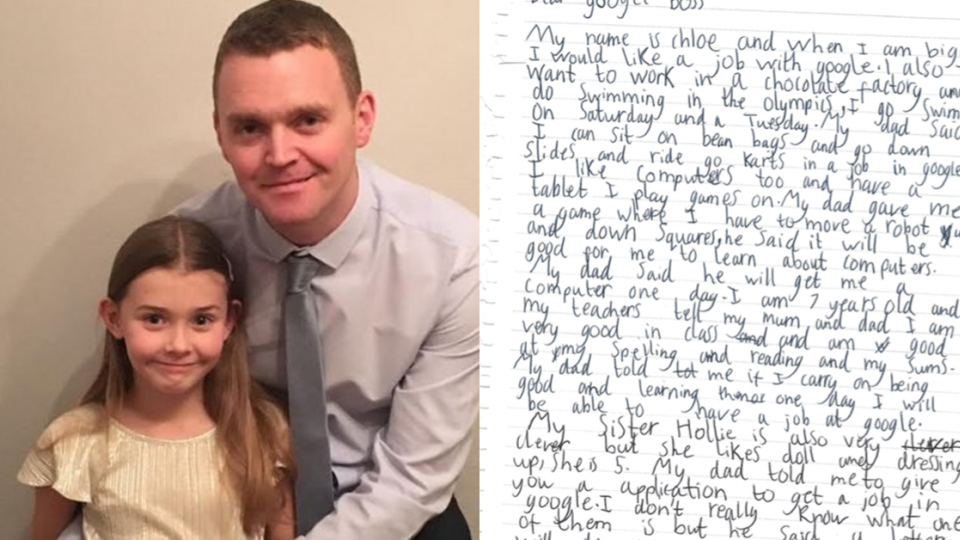 google boss
My name is chloe and when I am big
I would like a job with google. I also
want to work in a chocolate factory an
do swimming in the olympics, I go swim
On Saturday and a Tuesday. My dad said
I can sit on bean bags and go down
slides and ride go karts in a job in google
I like computers too and have a
tablet I play games on. My dad gave me
a game where I have to move a robot
and down squares, he said it will be
good for me to learn about computers.
My dad said he will get me a
computer one day. I am 7 years old and
my teachers tell my mum and dad I am
very good in class and and am good
at my spelling and reading and my sums.
My dad told me if I carry on being
good and learning one day I will
be able to have a job at google.
My sister Hollie is also very clever
clever but she likes doll and dressing
up, she is 5. My dad told me to give
you a application to get a job in
google. I don't really know what one
of them is but he said a letter